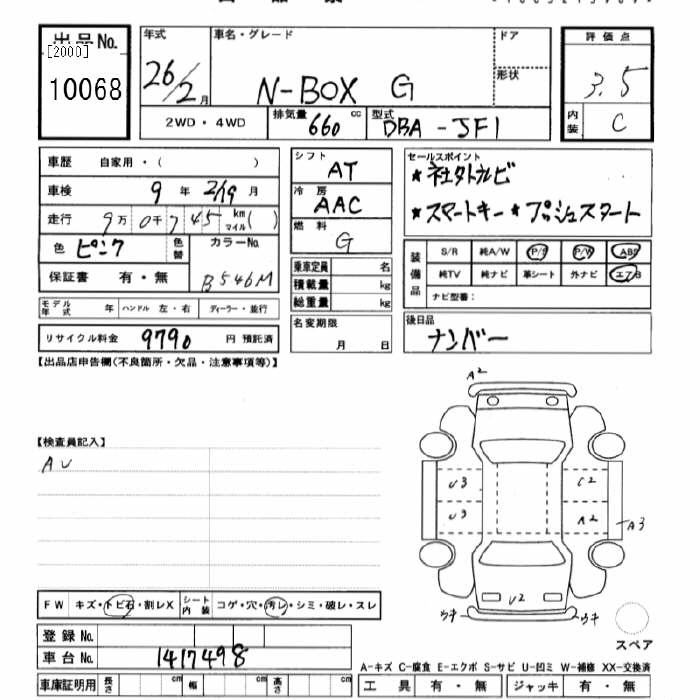 出品No.
[2000]
10068
年式
26/2月
車名・グレード
N-BOX G
ドア
形状
2WD・4WD
排気量 660 cc
型式 DBA-JF1
評価点
3.5
内装 C
車歴 自家用・( )
車検 9年 2/19月
走行 9万0千745 km マイル( )
色 ピンク 色替
カラーNo. B546M
保証書 有・無
モデル年式 年 ハンドル 左・右 ディーラー・並行
リサイクル料金 9790 円 預託済
シフト AT
冷房 AAC
燃料 G
乗車定員 名
積載量 kg
総重量 kg
名変期限 月 日
セールスポイント
★社外ナビ
★スマートキー★プッシュスタート
装備品
S/R 純A/W P/S P/W ABS
純TV 純ナビ 革シート 外ナビ エアB
ナビ型番:
後日品
ナンバー
【出品店申告欄(不良箇所・欠品・注意事項等)】
【検査員記入】
AU
A2
U3
U3
C2
A2
A3
U2
ウキ
ウキ
スペア
FW キズ・トビ石・割レX シート内装 コゲ・穴・汚レ・シミ・破レ・スレ
登録No.
車台No. 1417498
A-キズ C-腐食 E-エクボ S-サビ U-凹ミ W-補修 XX-交換済
車庫証明用 長さ cm 幅 cm 高さ cm
工具 有・無 ジャッキ 有・無